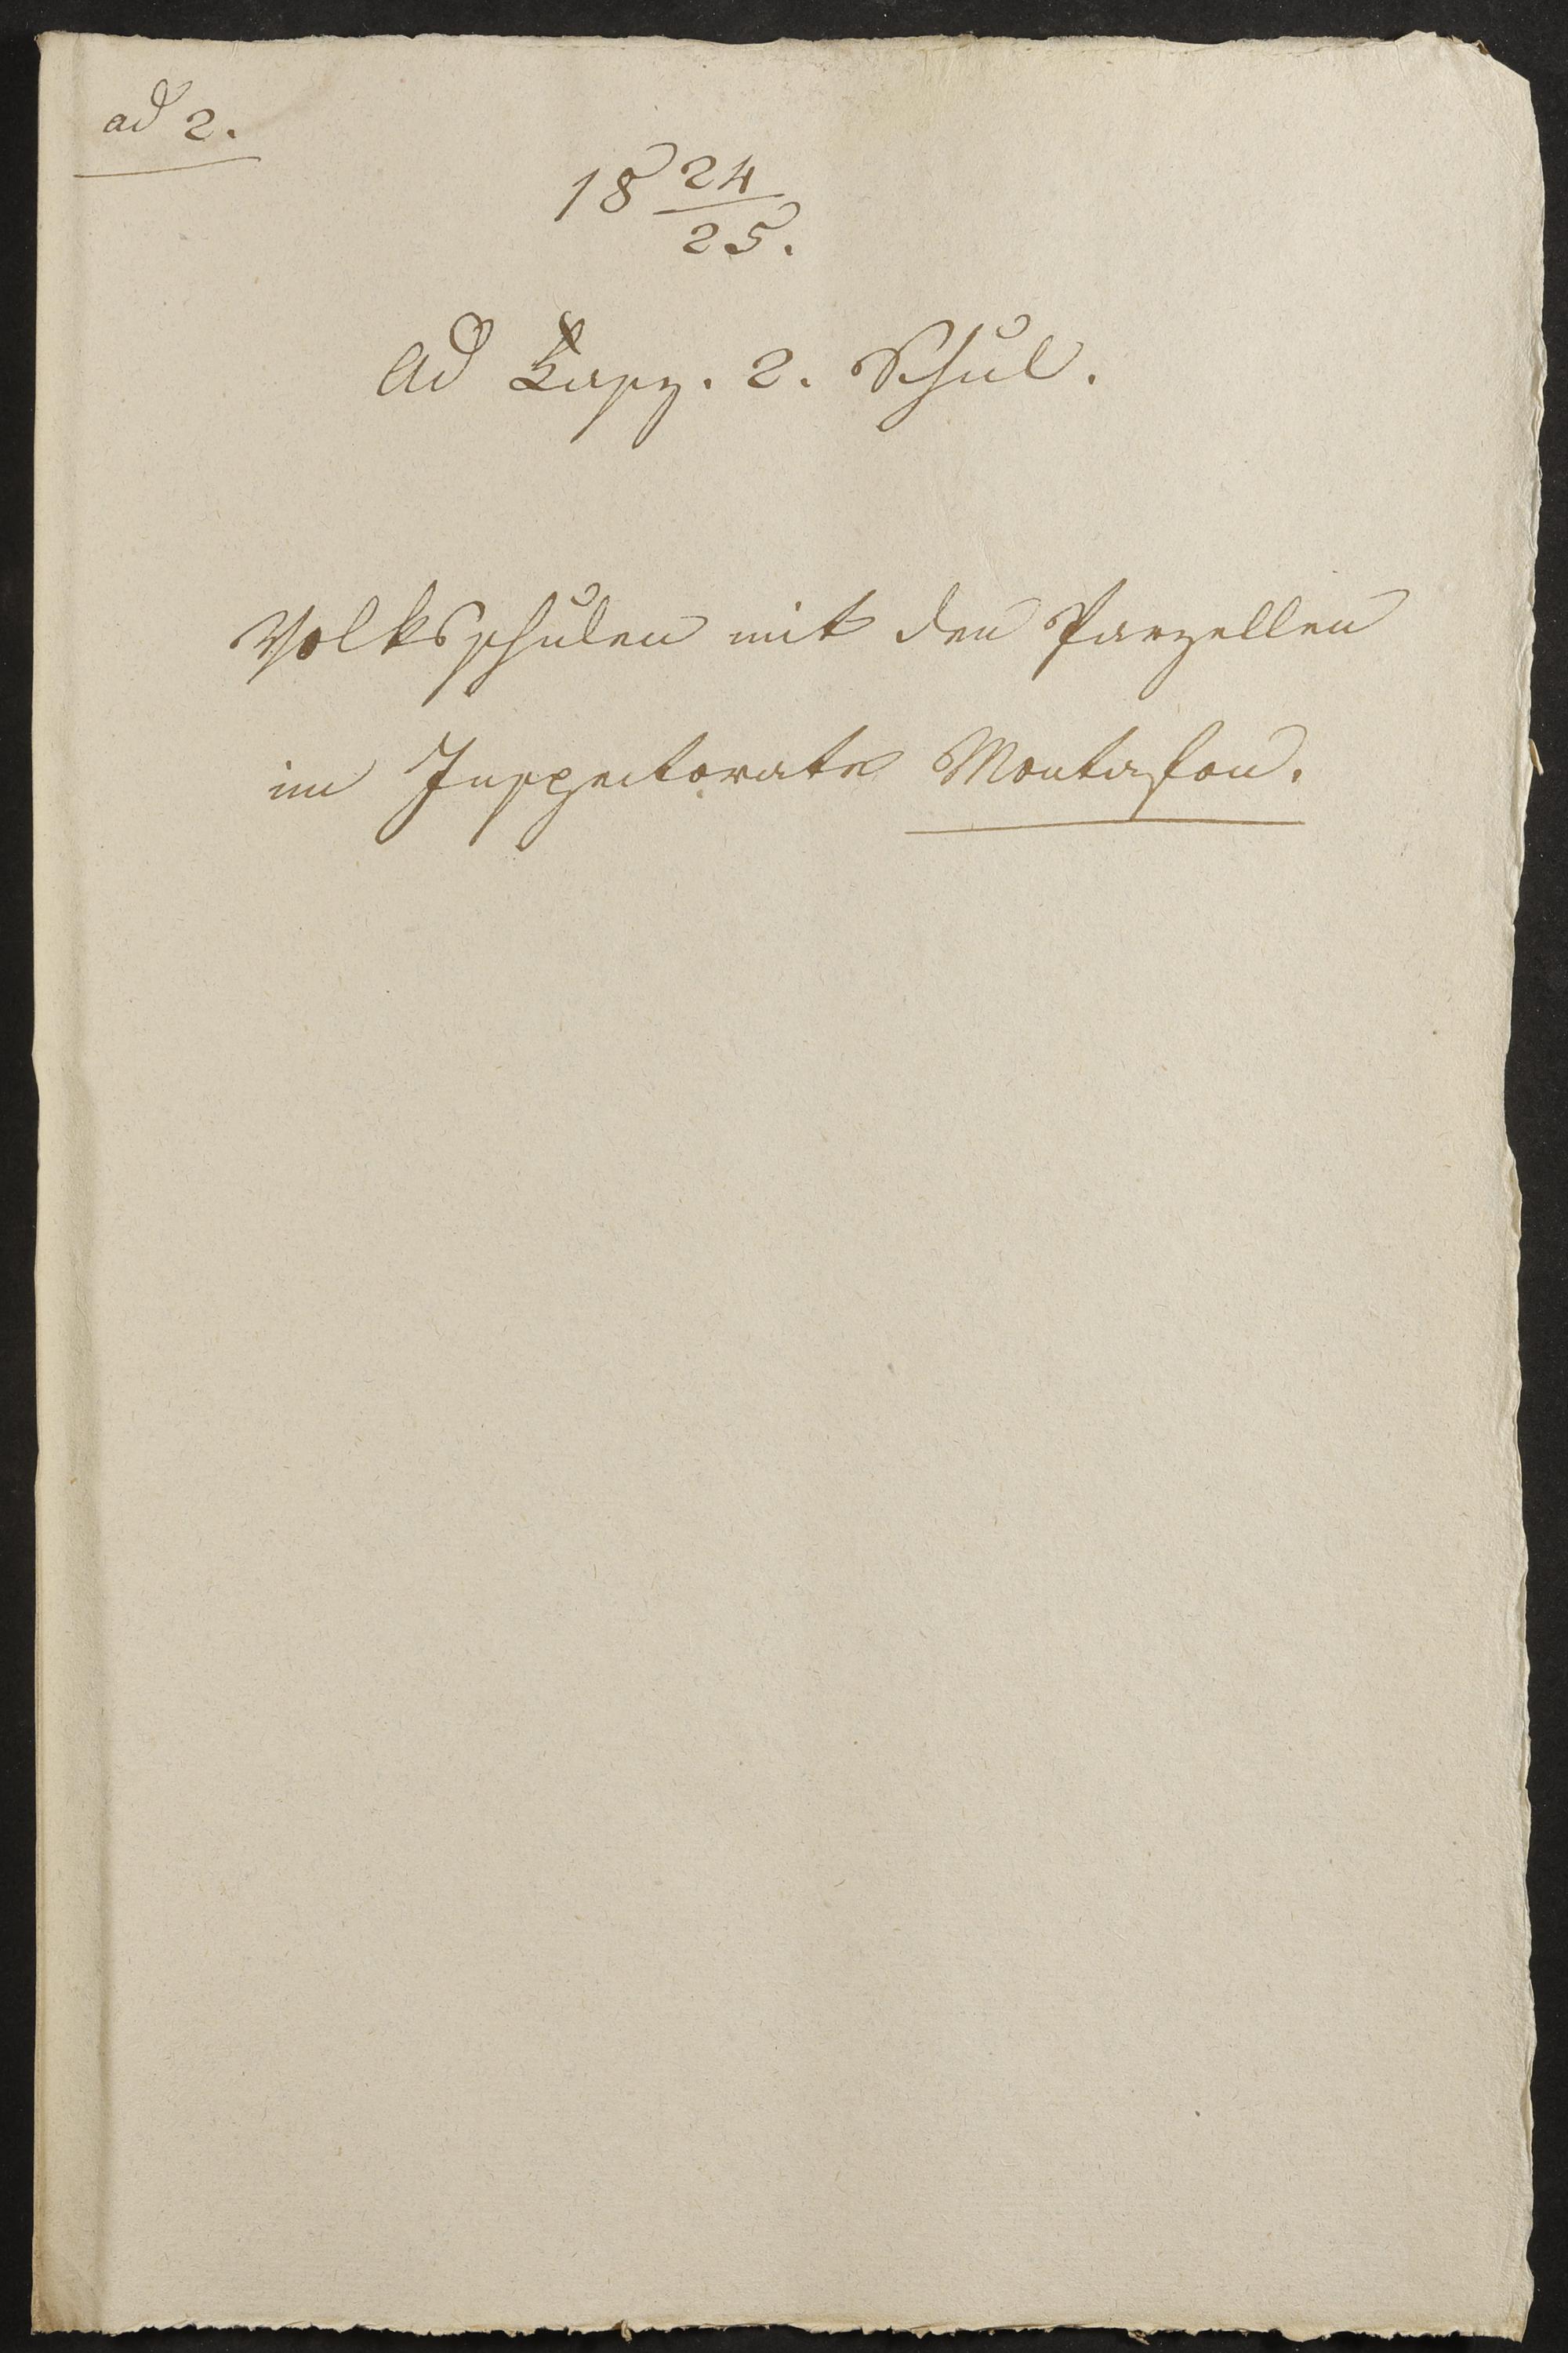 ad 2.
18 24/25.
Ad Fasz. 2. Schul.
Volksschulen mit den Parzellen
im Inspectorate Montafon.